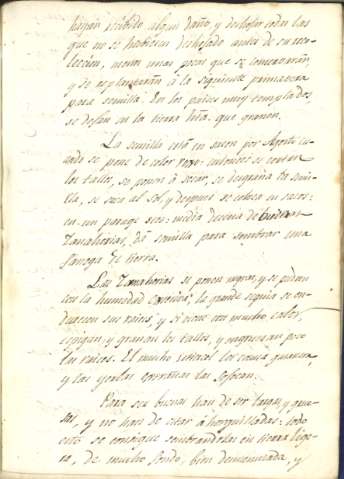 hayan recibido algun daño, y deshojar todas las
que no se habiesen deshojado antes de su reco-
leccion, menos unas pocas que se conservarán,
y se replantarán á la siguiente primavera
para semilla. En los paises muy templados,
se dejan en la tierra hta. que granen.
La semilla está en sazon por Agosto cu-
ando se pone de color rojo: entonces se cortan
los tallos, se ponen á secar, se desgrana la semi-
lla, se seca al sol, y despues se coloca en sacos
en un parage seco: media docena de buenas
Zanahorias, dá semilla para sembrar una
fanega de tierra.
Las Zanahorias se ponen negras, y se pudren
con la humedad excesiva; la grande sequia se en-
durecen sus raices, y si viene con mucho calor,
espigan, y granan los tallos, y engruesan poco
las raices. El mucho estiercol les causa gusanos,
y las yerbas estrañas las sofocan.
Para ser buenas han de ser largas, y grue-
sas, y no han de estar ahorquilladas: todo
esto se consigue sembrandolas en tierra lige-
ra, de mucho fondo, bien desmenuzada, y